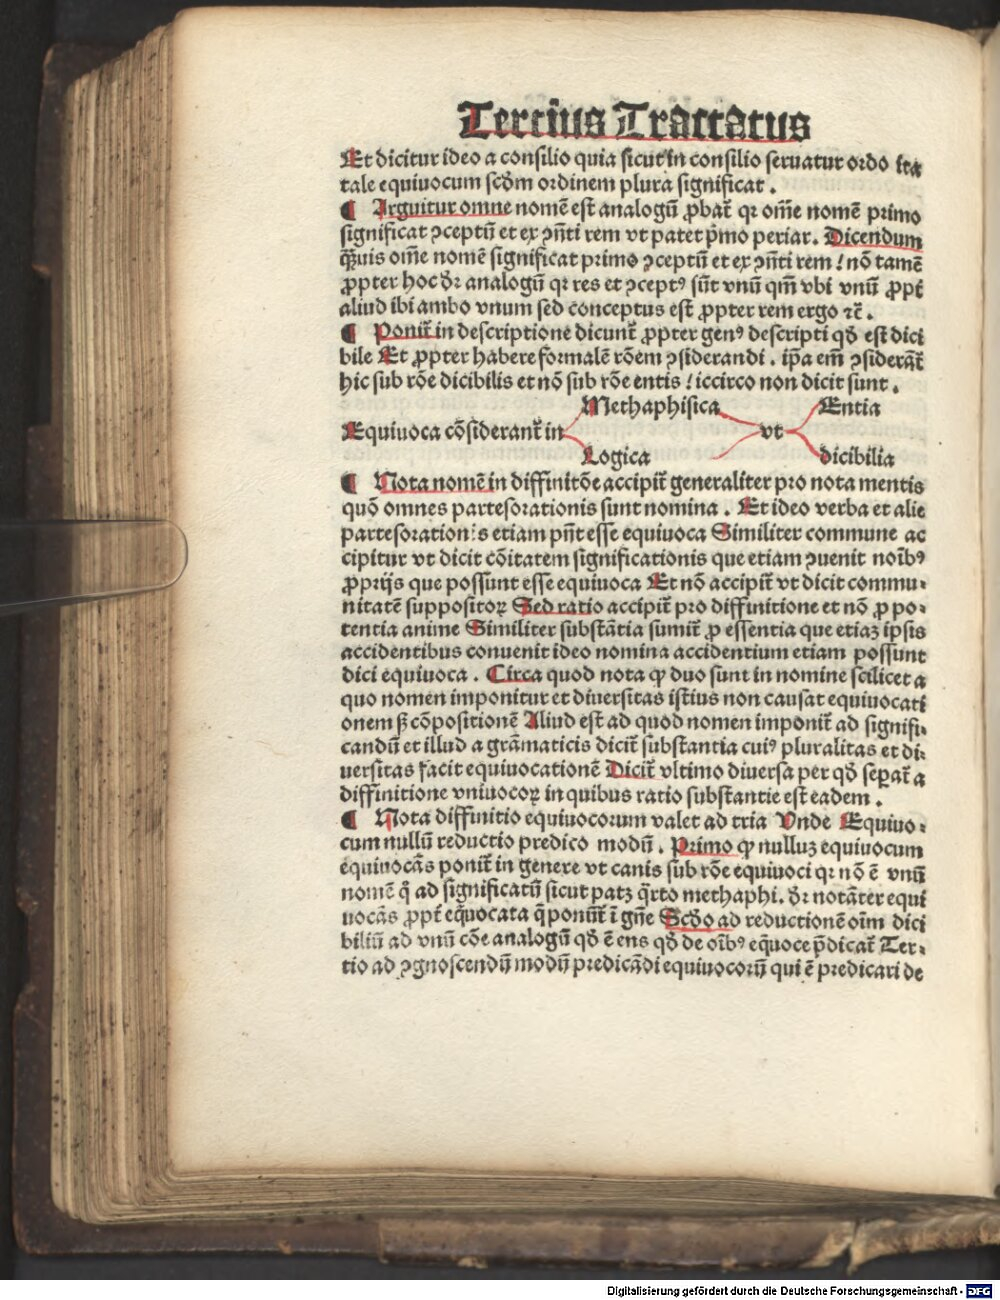 Tercius Tractatus
Et dicitur ideo a consilio quia sicut in consilio seruatur ordo ita
tale equiuocum scḋm ordinem plura significat .
¶ Arguitur omne nomē est analogū ꝓbat̄ qꝛ om̄e nomē primo
significat ꝯceptū et ex ꝯn̄ti rem vt patet p̄mo periar. Dicendum
q̄uis om̄e nomē significat primo ꝯceptū et ex ꝯn̄ti rem / nō tamē
ꝓpter hoc dr̄ analogū qꝛ res et ꝯceptꝰ sūt vnū qm̄ vbi vnū ꝓpt̄
aliud ibi ambo vnum sed conceptus est ꝓpter rem ergo ⁊c̄ .
¶ Ponit̄ in descriptione dicunt̄ ꝓpter genꝰ descripti qḋ est dici
bile Et ꝓpter habere formalē rōem ꝯsiderandi . ip̄a em̄ ꝯsiderāt̄
hic sub rōe dicibilis et nō sub rōe entis / iccirco non dicit sunt .
Methaphisica Entia
Equiuoca cōsiderant̄ in vt
Logica dicibilia
¶ Nota nomē in diffinitōe accipit̄ generaliter pro nota mentis
quō omnes partesorationis sunt nomina . Et ideo verba et alie
partesorationis etiam pn̄t esse equiuoca Similiter commune ac
cipitur vt dicit cōitatem significationis que etiam ꝯuenit noībꝰ
ꝓprijs que possunt esse equiuoca Et nō accipit̄ vt dicit commu-
nitatē suppositoꝝ Sed ratio accipit̄ pro diffinitione et nō ꝓ po-
tentia anime Similiter substātia sumit̄ ꝓ essentia que etiaꝫ ipsis
accidentibus conuenit ideo nomina accidentium etiam possunt
dici equiuoca . Circa quod nota ꝙ duo sunt in nomine scilicet a
quo nomen imponitur et diuersitas istius non causat equiuocati
onem sꝫ cōpositionē Aliud est ad quod nomen imponit̄ ad signifi-
candū et illud a grāmaticis dicit̄ substantia cuiꝰ pluralitas et di-
uersitas facit equiuocationē Dicit̄ vltimo diuersa per qḋ seꝑat̄ a
diffinitione vniuocoꝝ in quibus ratio substantie est eadem .
¶ Nota diffinitio equiuocorum valet ad tria Vnde Equiuo-
cum nullū reductio predico modū . Primo ꝙ nulluꝫ equiuocum
equiuocās ponit̄ in genere vt canis sub rōe equiuoci qꝛ nō ē vnū
nomē q̄ ad significatū sicut patꝫ q̄rto methaphi. dr̄ notāter equi
uocās ꝓpt̄ eq̄uocata q̄ ponūt̄ ī gn̄e Scḋo ad reductionē oīm dici
biliū ad vnū cōe analogū qḋ ē ens qḋ de oībꝰ eq̄uoce p̄dicat̄ Ter-
tio ad ꝯgnoscendū modū predicādi equiuocorū qui ē predicari de